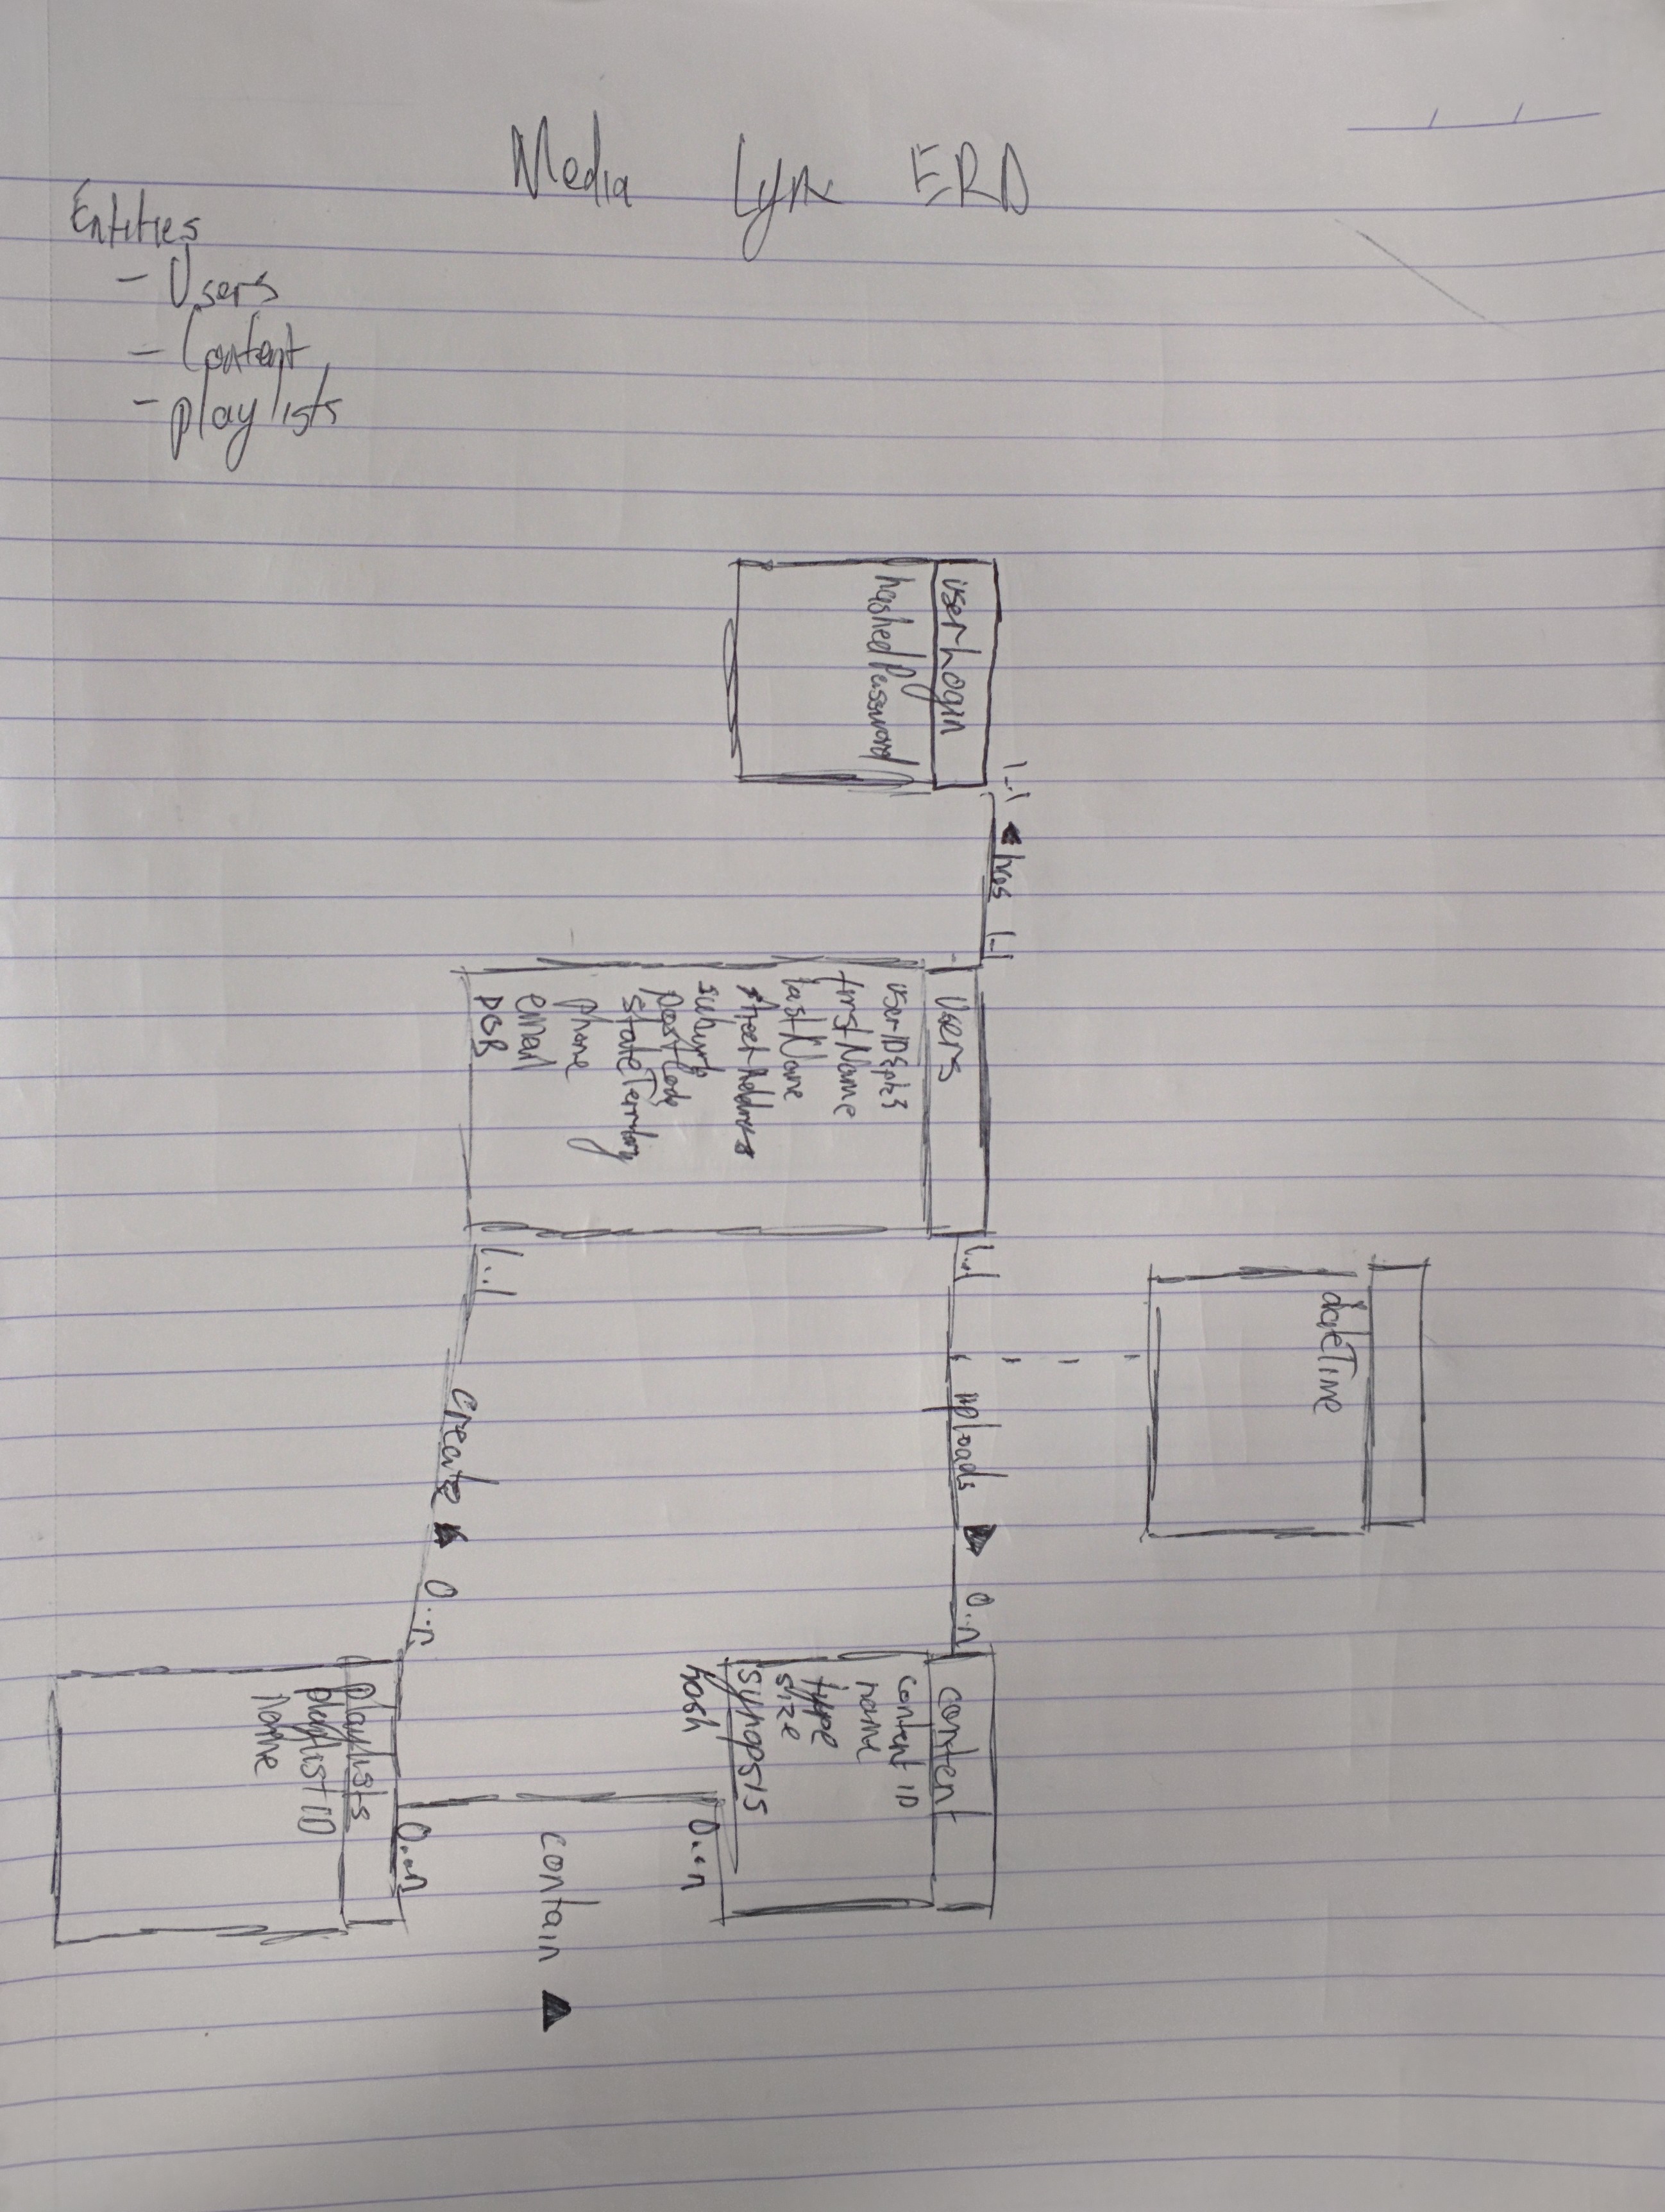 Media Lynx ERD
Entities
- Users
- Content
- playlists
userLogin
hashedPassword
1..1
has
1..1
Users
userID {pk}
firstName
lastName
streetAddress
suburb
postCode
stateTerritory
phone
email
DOB
dateTime
1..1
uploads
0..n
1..1
creates
0..n
content
content ID
name
type
size
synopsis
hash
0..n
contain
0..n
playlists
playlist ID
name